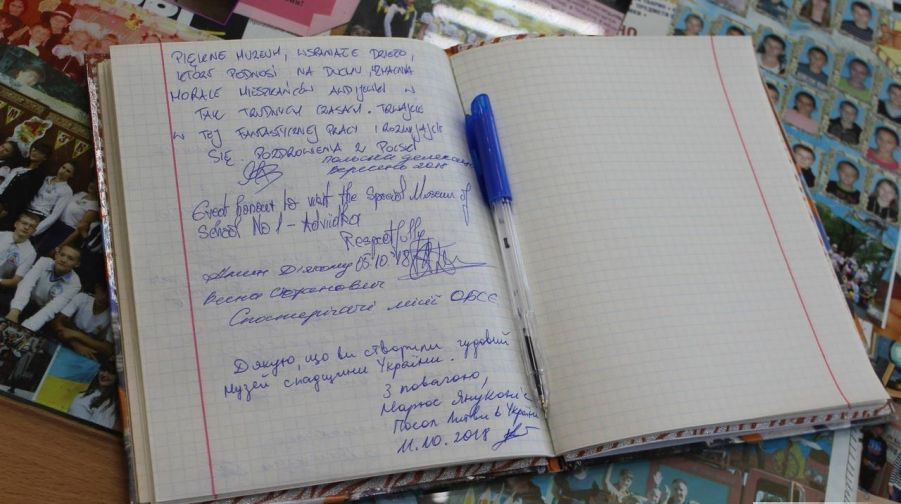 PIĘKNE MUZEUM, WSPANIAŁE DZIEŁO,
KTÓRE PODNOSI NA DUCHU I
MORALE MIESZKAŃCÓW AWDIJIWKI W
TAK TRUDNYCH CZASACH. TRWAJCIE
W TEJ FANTASTYCZNEJ PRACY I ROZWIJAJCIE
SIĘ. POZDROWIENIA Z POLSKI
польська делегація
вересень 2018
Great honour to visit the Special Museum of
School No 1 - Advidka
Respectfully
05.10.18
Весна
Спостерігачі місії ОБСЄ
Дякую, що ви створили чудовий
музей спадщини України.
З повагою,
Марюс Януконіс
Посол Литви в Україні
11.10.2018